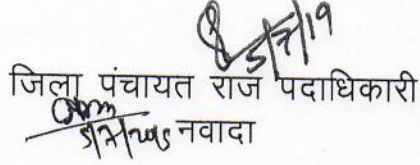 5/7/19
जिला पंचायत राज पदाधिकारी
नवादा